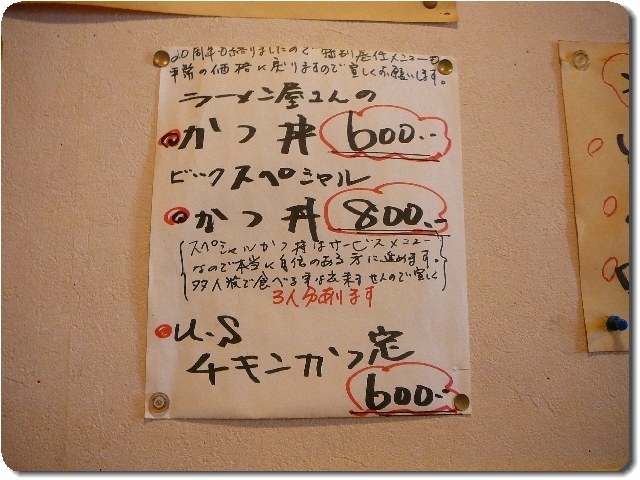 20周年も終りましたので特別居住メニューも
平常の価格に戻りますので宜しくお願いします。
ラーメン屋さんの
かつ丼 600.-
ビックスペシャル
かつ丼 800.-
スペシャルかつ丼はサービスメニュー
なので本当に自信のある方に進めます。
多人数で食べる事は出来ませんので宜しく
3人分あります
U.S
チキンかつ定
600.-